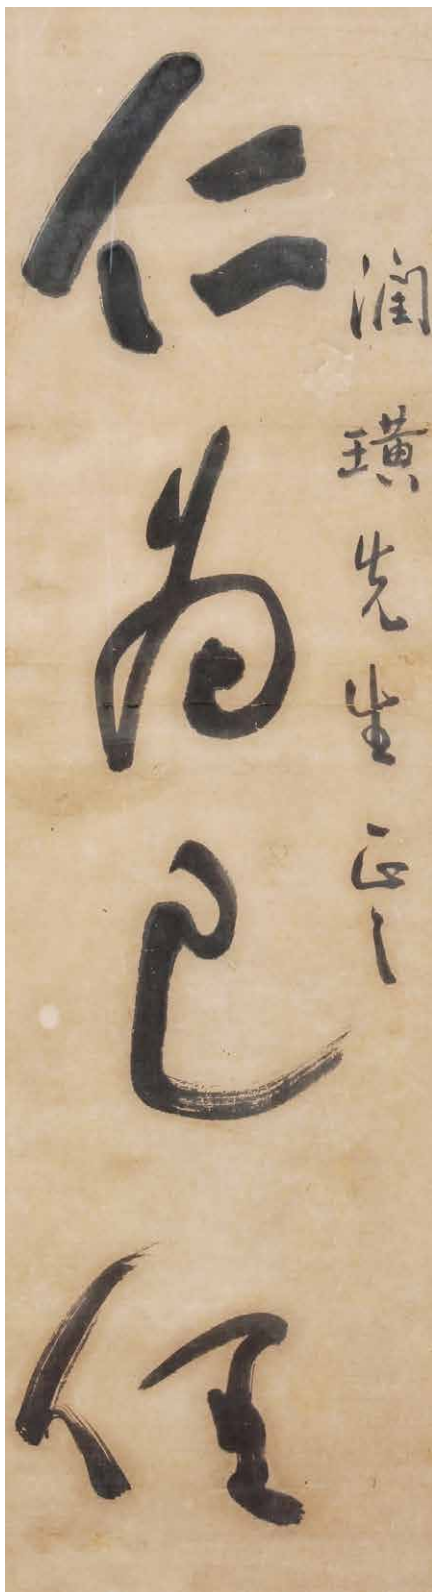 潤璜先生正之
仁為己任